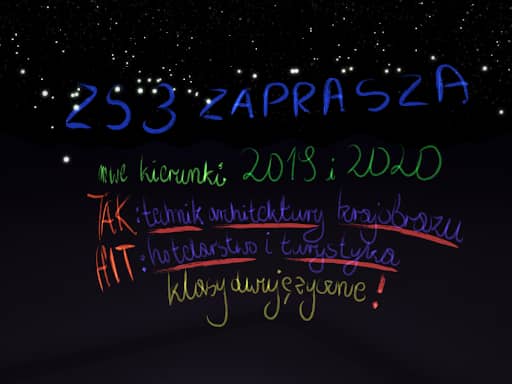 ZS3 ZAPRASZA
nowe kierunki 2019 i 2020
TAK: technik architektury krajobrazu
HIT: hotelarstwo i turystyka
klasy dwujęzyczne!